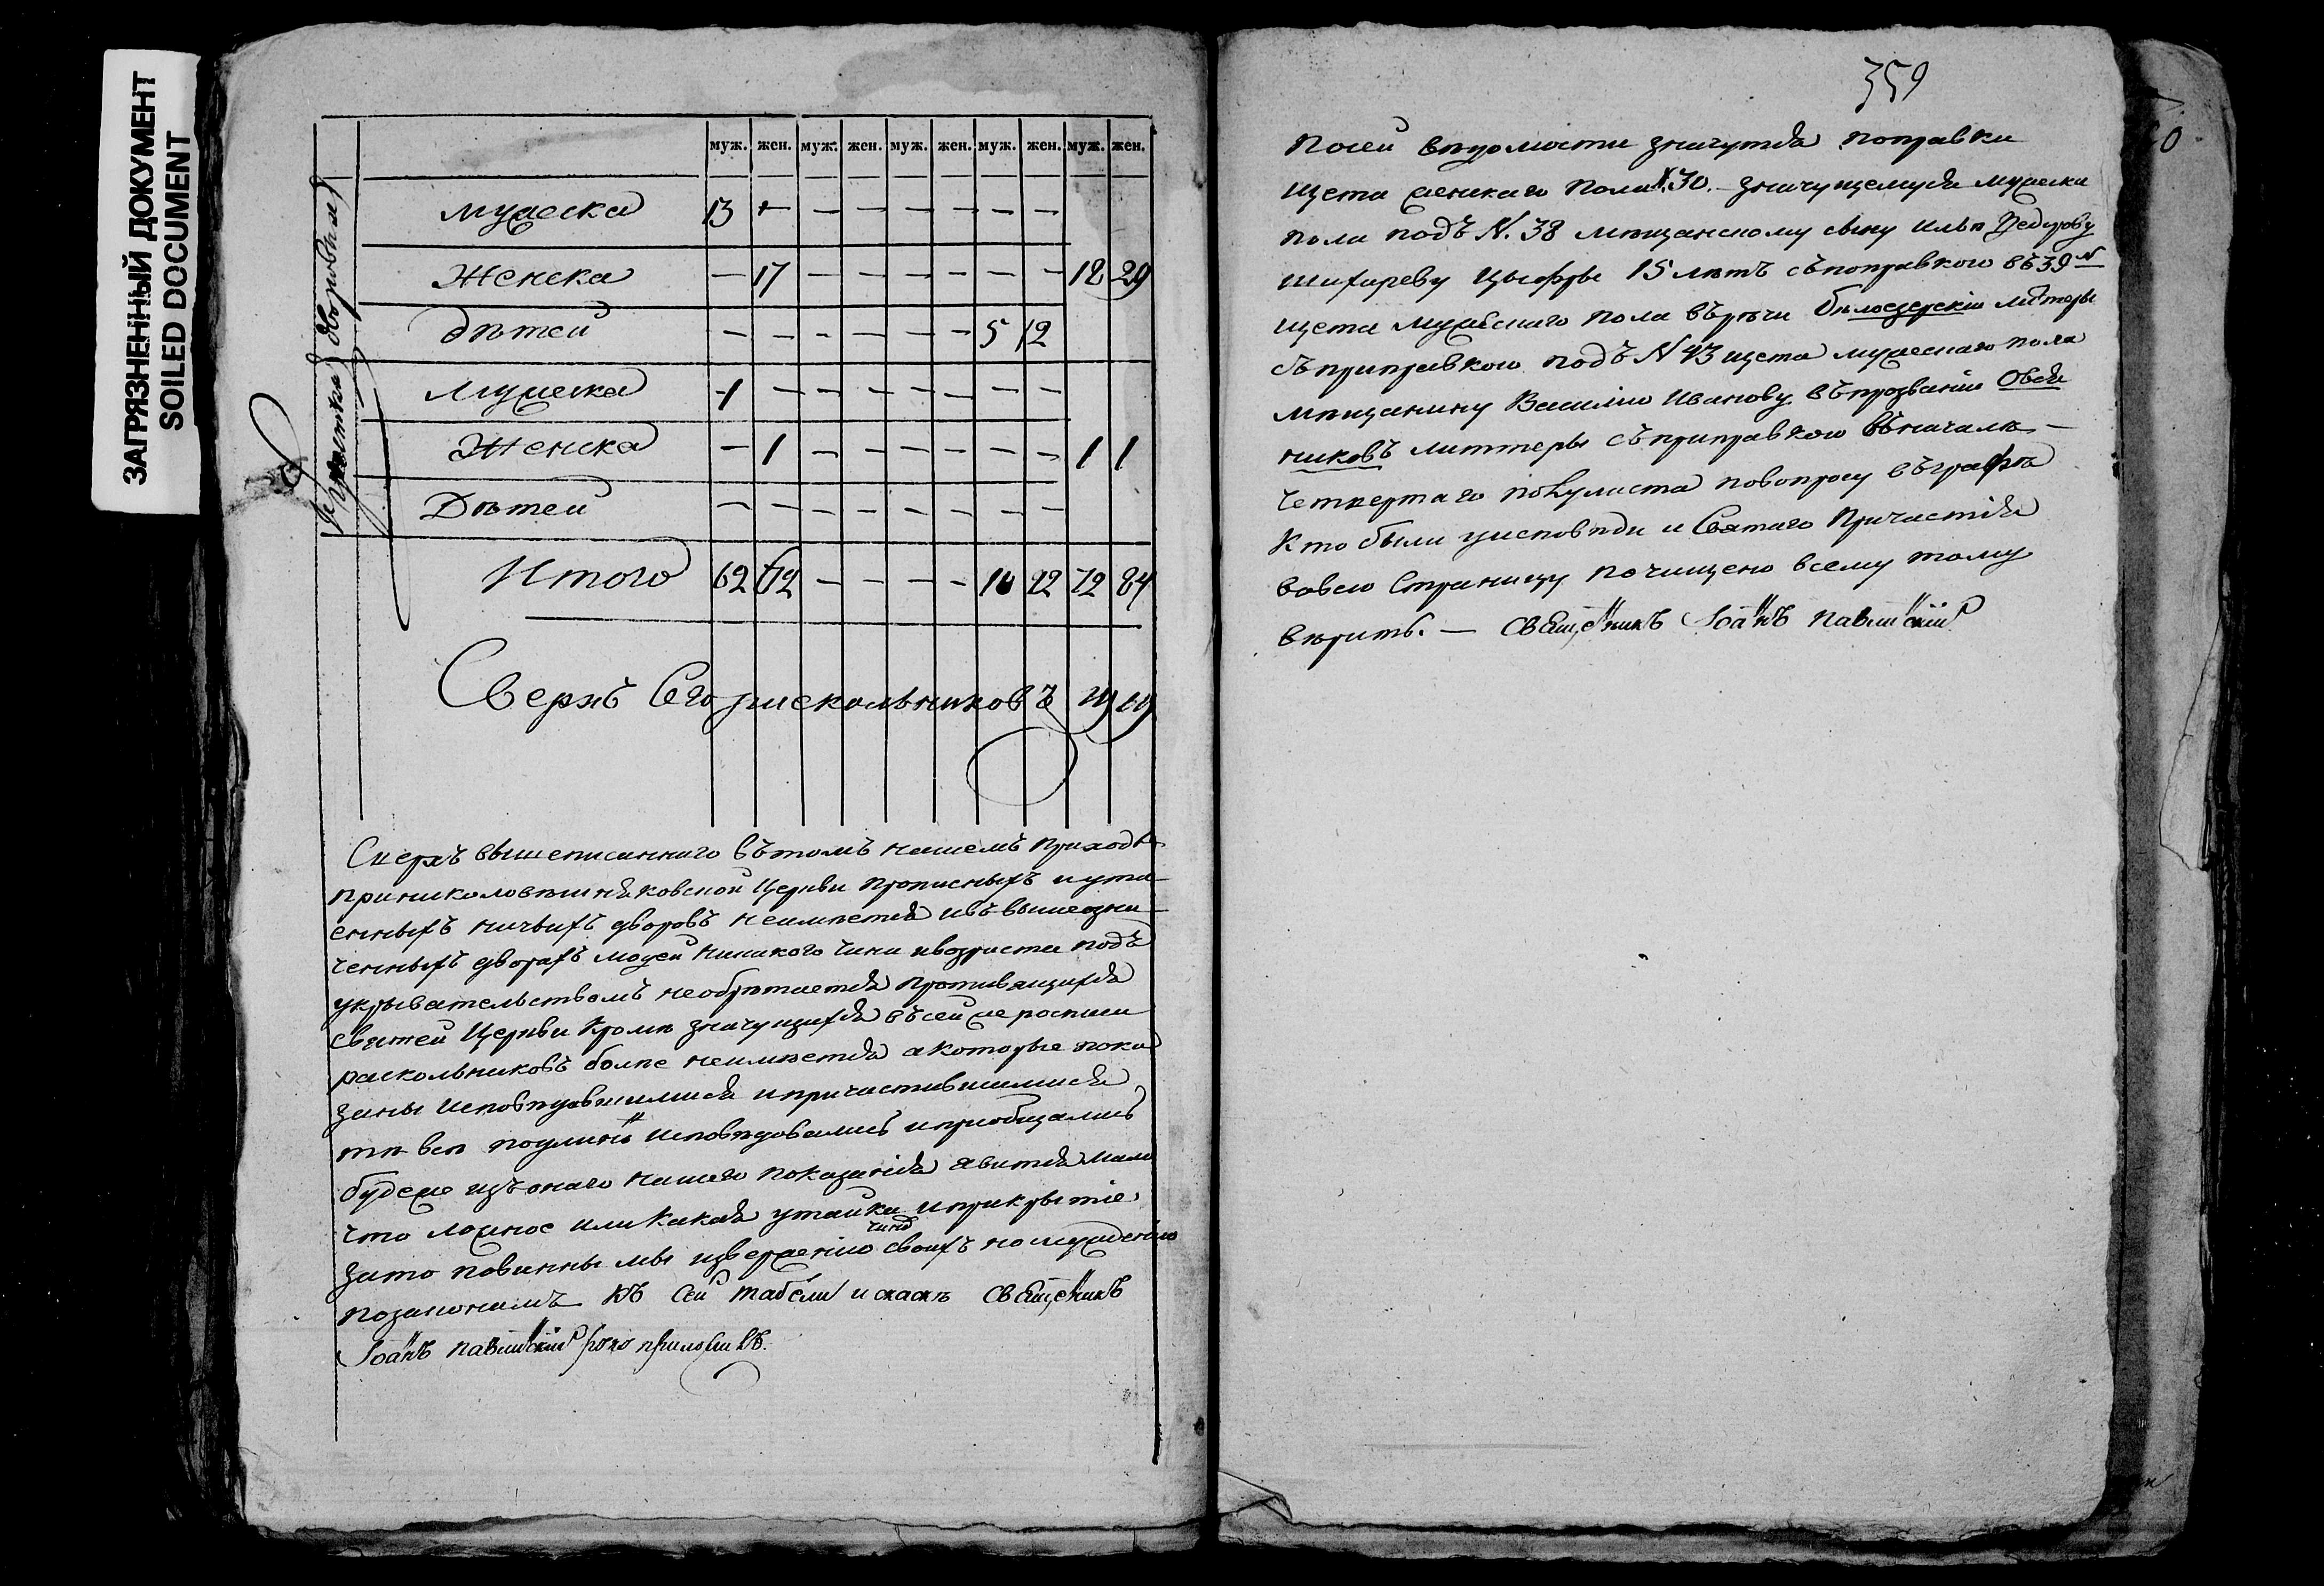 ЗАГРЯЗНЕННЫЙ ДОКУМЕНТ
SOILED DOCUMENT
муж. жен. муж. жен. муж. жен. муж. жен. муж. жен.
дворовыя
мужеска 13 — — — — — — —
женска — 17 — — — — — — 18 29
дѣтей — — — — — — 5 12
мужеска 1 — — — — — — —
женска — 1 — — — — — — 1 1
Дѣтей — — — — — — — —
Итого 62 62 — — — — 10 22 72 84
Сверхъ Сего раскольниковъ
Сверхъ вышеписаннаго въ томъ нашемъ приходѣ
при николовешняковской Церкви прописныхъ и ута
енныхъ ничьихъ дворовъ неимѣется и въ вышеозна
ченныхъ дворахъ людей никакого чина и возраста подъ
укрывательствомъ необрѣтается противящихся
святей Церкви кромѣ значущихся въ сей же росписи
раскольниковъ болѣе неимѣется а которые пока
заны исповѣдавшимися и причастившимися
тѣ всѣ подлинно исповѣдовались и приобщались
будеже изъ онаго нашего показанія явится мало
что ложное или какая утайка и прикрытіе,
зато повинны мы изверженію чина своихъ по сужденію
по законамъ Къ сей табели и скаскѣ священникъ
Іоаннъ руку приложилъ.
359
По сей вѣдомости значутся поправки
щета женскаго пола N. 30. значущемуся мужеска
пола подъ N. 38 мѣщанскому сыну Ильѣ Федорову
Цыфры 15 лѣтъ съ поправкою въ 39 N
щета мужескаго пола въ рѣчи бѣлозерскій литеры
съ приправкою подъ N 43 щета мужескаго пола
мѣщанину Василию Иванову въ прозваніи Овся
никовъ литтеры съ приправкою въ началѣ —
четвертаго полулиста по вопросу въ графѣ
кто были у исповѣди и Святаго Причастія
во всю Страницу почищено всему тому
вѣрить. — священникъ Іоаннъ